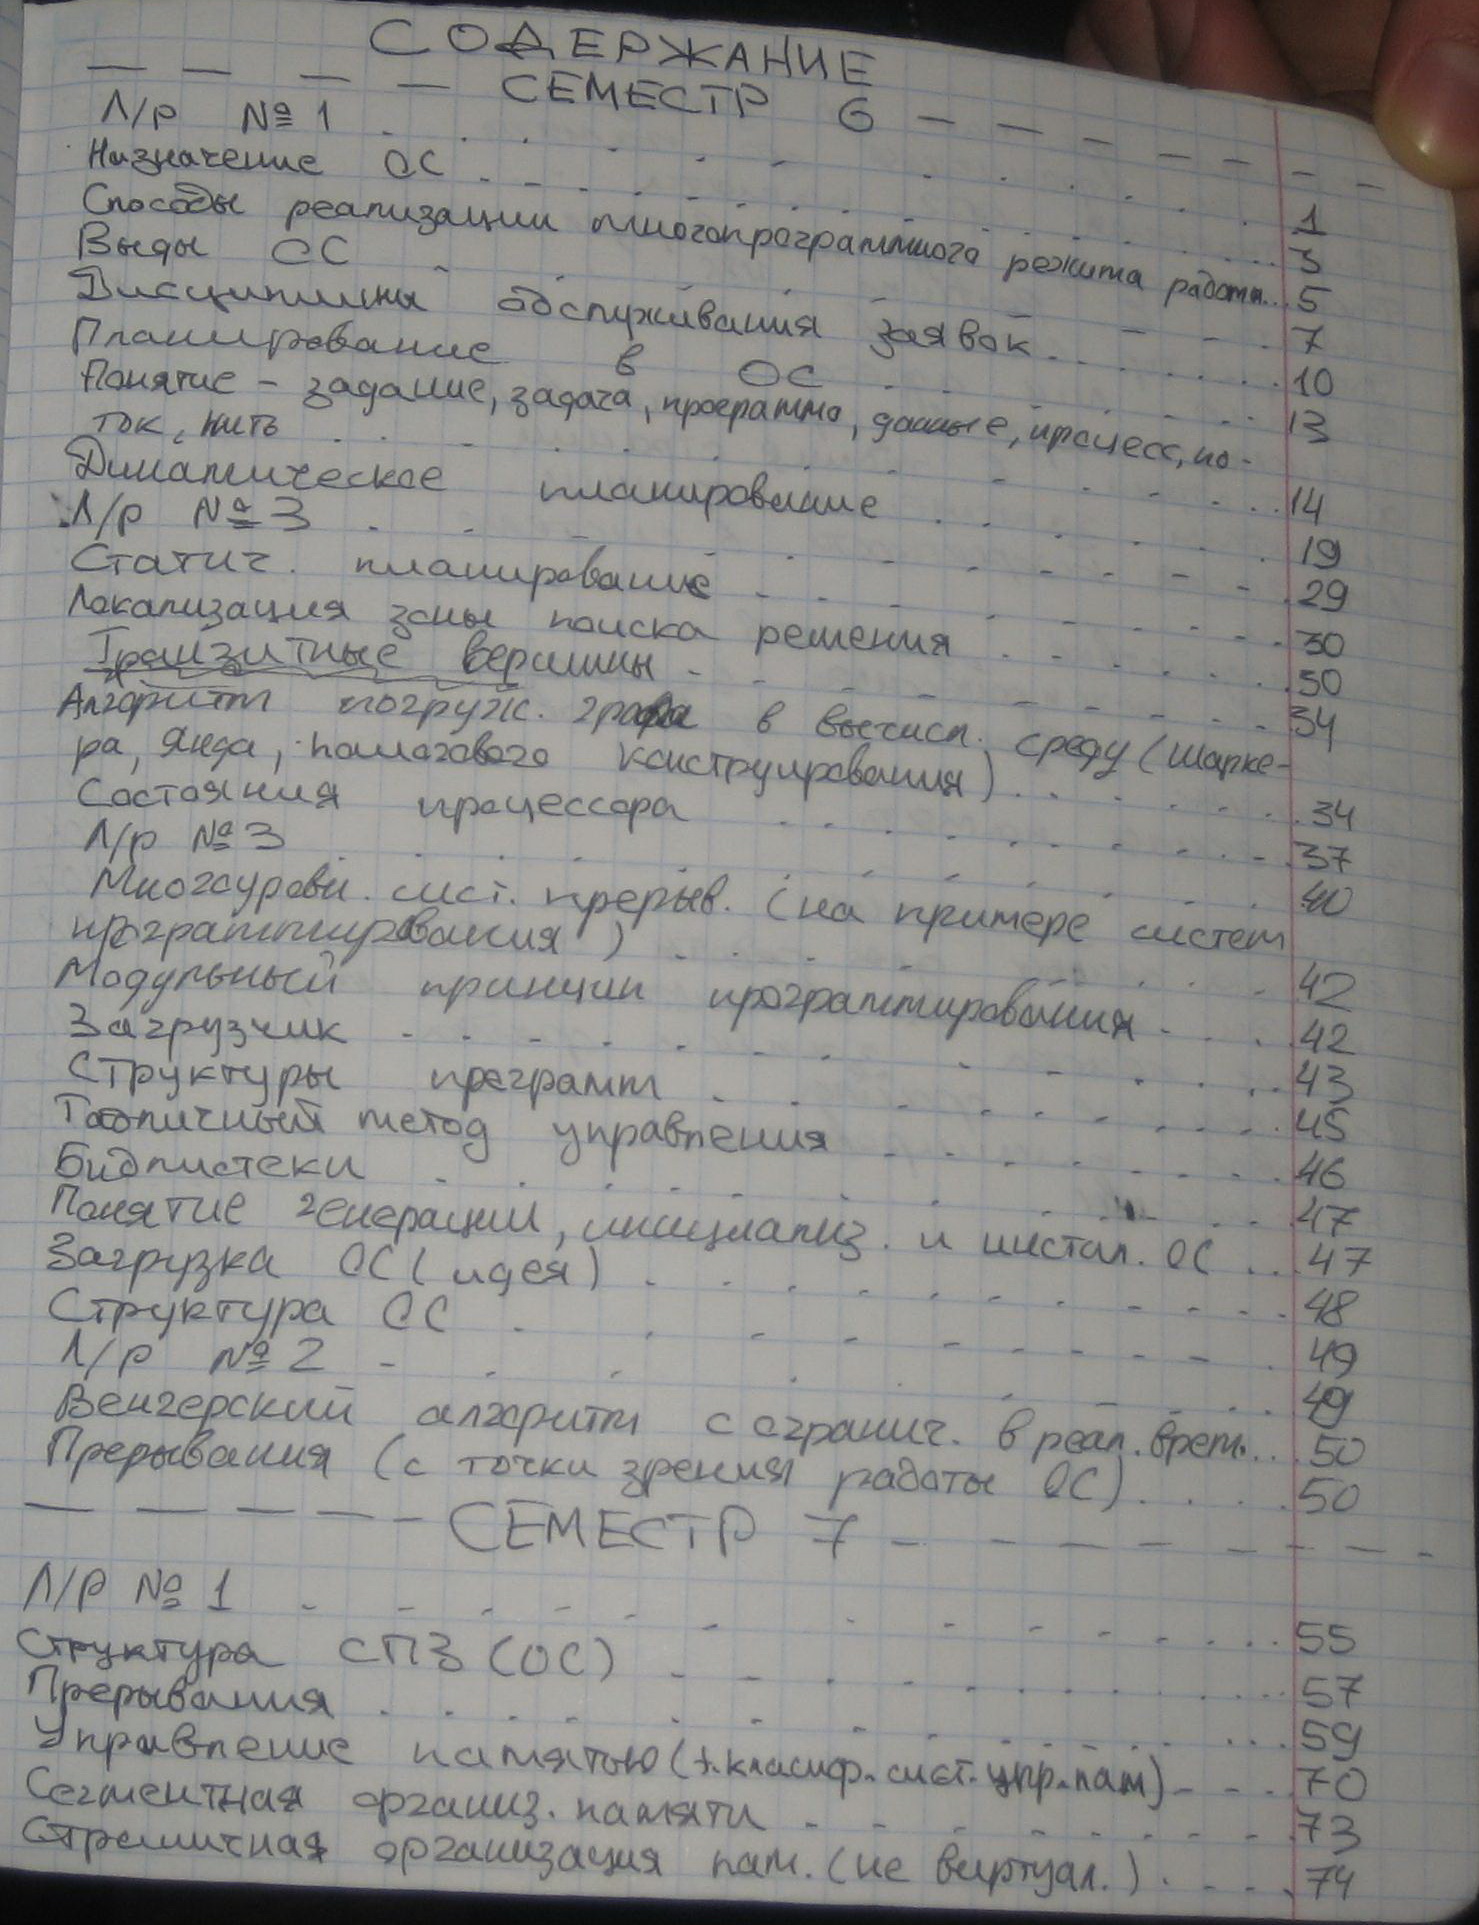 СОДЕРЖАНИЕ
— — — — СЕМЕСТР 6 — — — — — — —
Л/р №1 . . . . . . . . . . 1
Назначение ОС . . . . . . . . . . 3
Способы реализации многопрограммного режима работы... 5
Выды ОС . . . . . . . . . . 7
Дисциплины обслуживания заявок . . . . . 10
Планирование в ОС . . . . . 13
Понятие - задание, задача, программа, данные, процесс, по-
ток, нить . . . . . . . . . . 14
Динамическое планирование . . . . . 19
Л/р №3 . . . . . . . . . . 29
Статич. планирование . . . . . . . 30
Локализация зоны поиска решения . . . . . 30
Транзитные вершины . . . . . . . 34
Алгоритм погруж. графа в вычисл. среду (Шарке-
ра, Янда, пошагового конструирования) . . . . . 34
Состояния процессора . . . . . . . 37
Л/р №3 . . . . . . . . . . 40
Многоуровн. сист. прерыв. (на примере систем
программирования) . . . . . . . 42
Модульный принцип программирования . . . 42
Загрузчик . . . . . . . . . . 43
Структуры программ . . . . . . . 45
Табличный метод управления . . . . . 46
Библиотеки . . . . . . . . . . 47
Понятие генерации, инициализ. и инстал. ОС ... 47
Загрузка ОС (идея) . . . . . . . 48
Структура ОС . . . . . . . . . . 49
Л/р №2 . . . . . . . . . . 49
Венгерский алгоритм с огранич. в реал. врем. ... 50
Прерывания (с точки зрения работы ОС) . . . . 50
— — — — — СЕМЕСТР 7 — — — — — — — —
Л/Р №1 . . . . . . . . . . 55
Структура СПЗ (ОС) . . . . . . . 57
Прерывания . . . . . . . . . . 59
Управление памятью (+.класиф. сист. упр. пам) - - - 70
Сегментная организ. памяти . . . . . . . 73
Страничная организация пам. (не виртуал.) . . . . 74